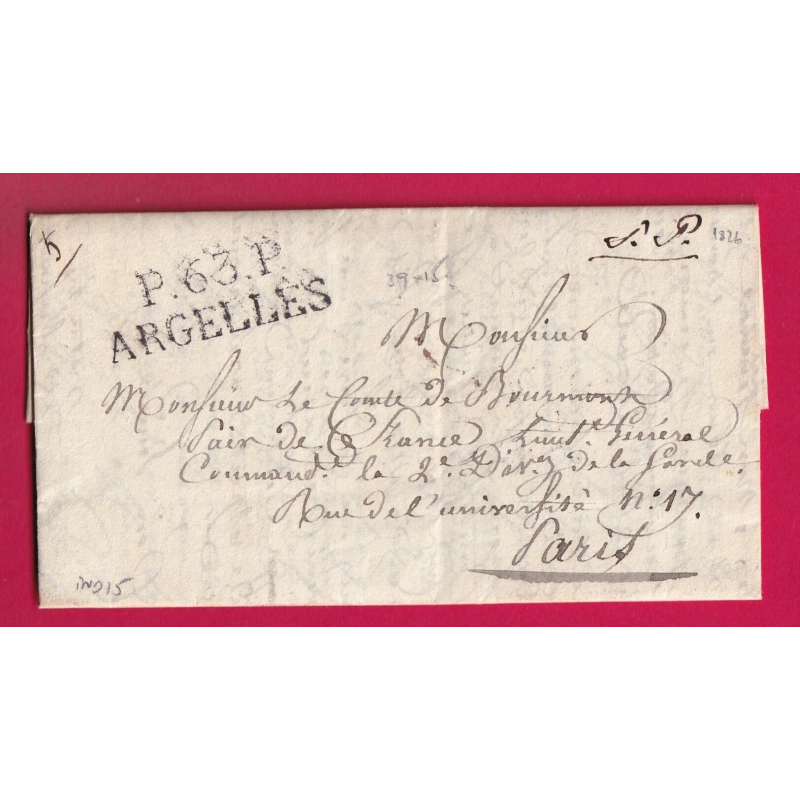 5
P.63.P.
ARGELLÈS
39-15
P. P.
1826
Monsieur
Monsieur Le Comte de Bourmont
Pair de France Lieut.t Général
Command.t la 2.e Div.on de la Garde.
Rue de l'université N.o 17.
Paris
IND15